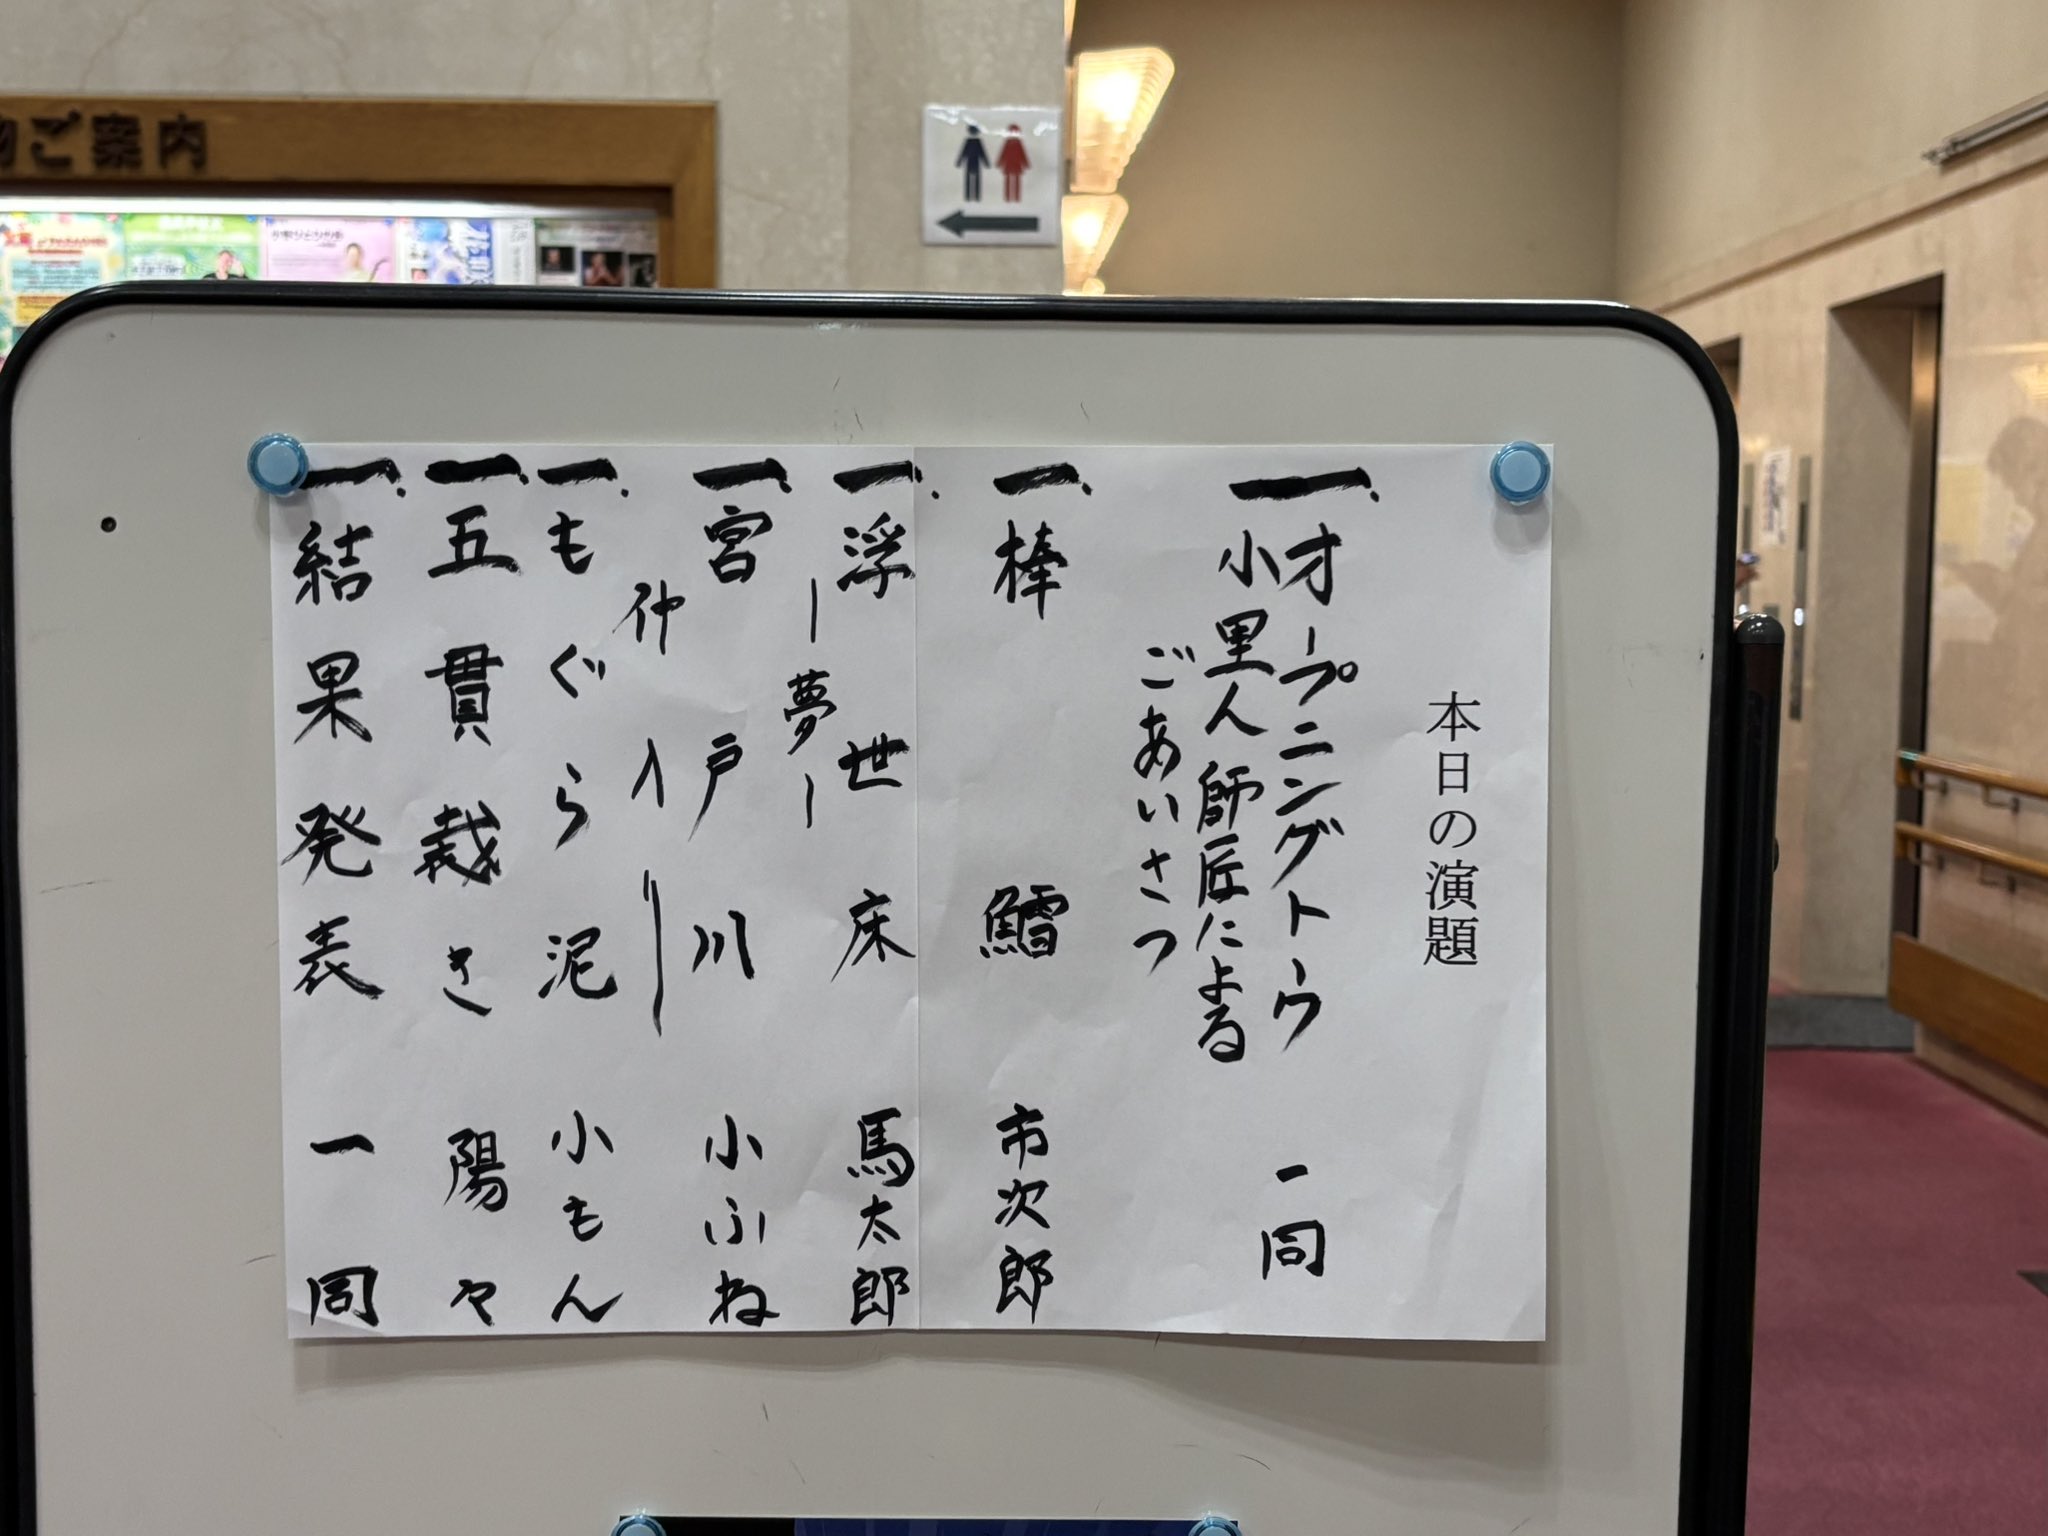 ご案内
本日の演題
一、オープニングトーク 一同
小里人師匠による
ごあいさつ
一、棒鱈 市次郎
一、浮世床 馬太郎
―夢―
一、宮戸川 小ふね
仲入り
一、もぐら泥 小もん
一、五貫裁き 陽や
一、結果発表 一同